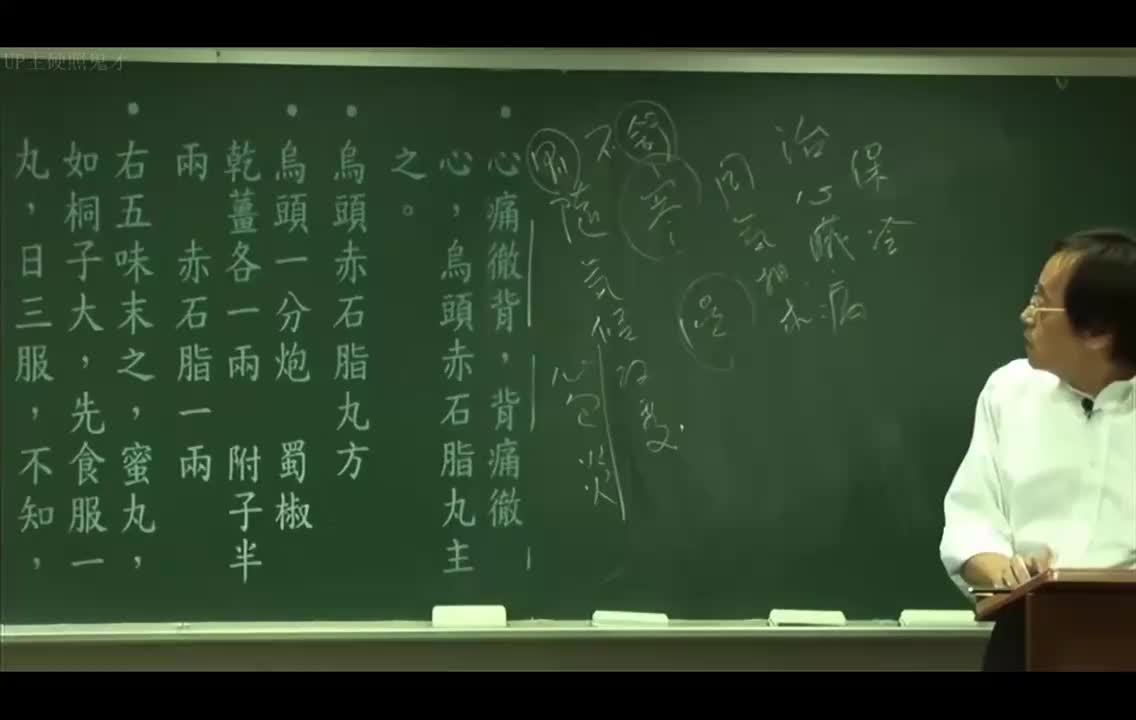 UP主硬照鬼才
心痛徹背,背痛徹
心,烏頭赤石脂丸主
之。
烏頭赤石脂丸方
烏頭一分炮 蜀椒
乾薑各一兩 附子半
兩 赤石脂一兩
右五味末之,蜜丸,
如桐子大,先食服一
丸,日三服,不知,
保冷
治心臟病
同氣相求
寒
不隨氣候改變
心包炎